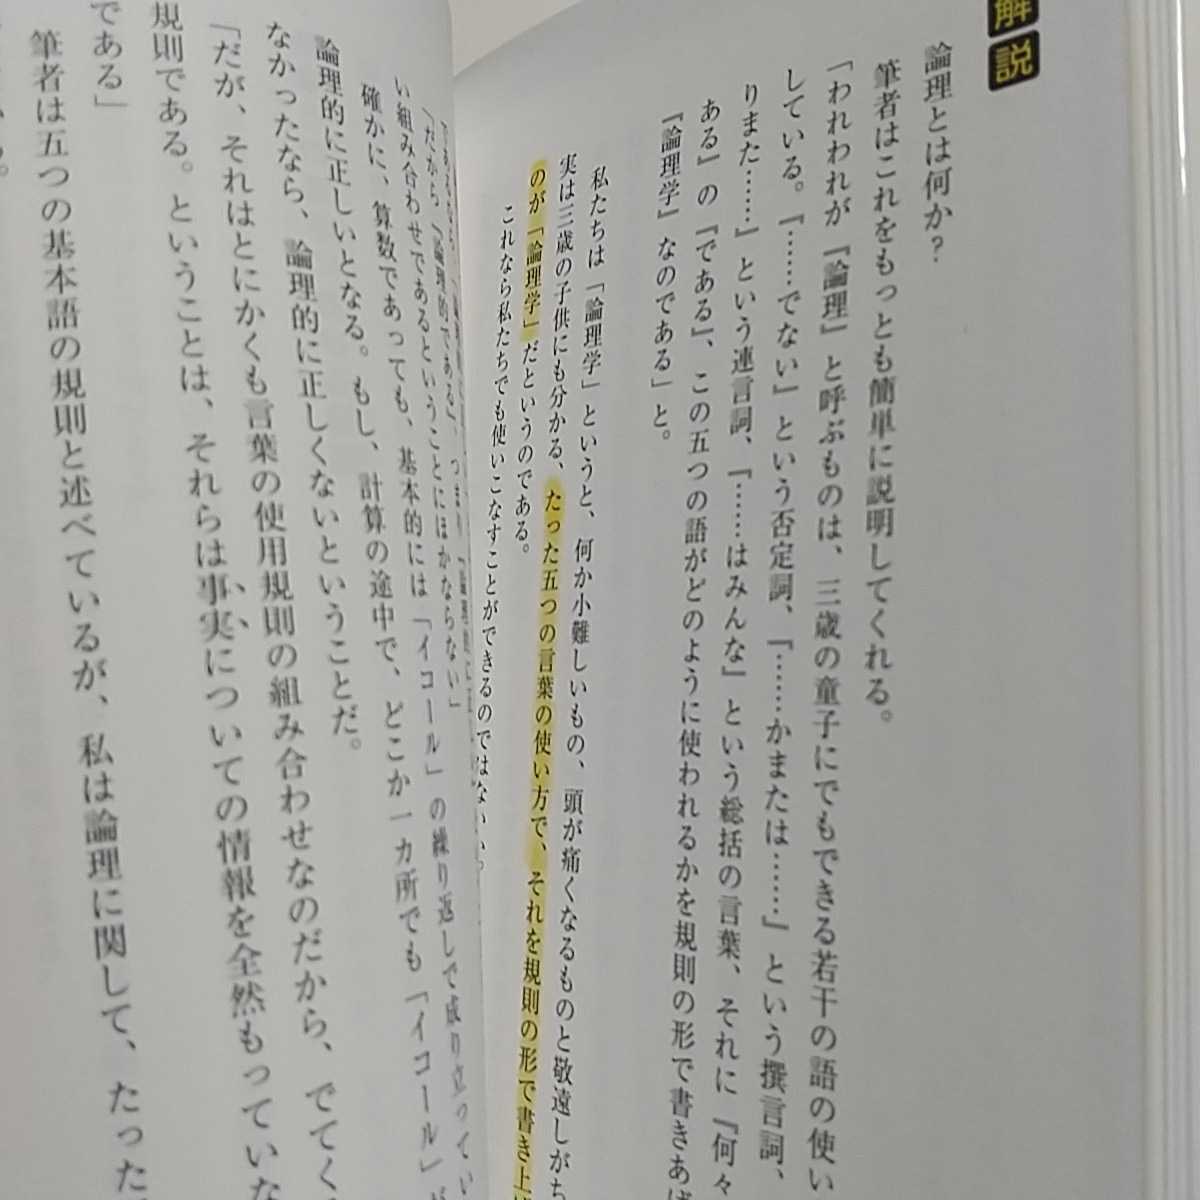 解説
論理とは何か？
筆者はこれをもっとも簡単に説明してくれる。
「われわれが『論理』と呼ぶものは、三歳の童子にでもできる若干の語の使い
している。『……でない』という否定詞、『……かまたは……』という撰言詞、
りまた……』という連言詞、『……はみんな』という総括の言葉、それに『何々
ある』の『である』、この五つの語がどのように使われるかを規則の形で書きあげ
『論理学』なのである」と。
私たちは「論理学」というと、何か小難しいもの、頭が痛くなるものと敬遠しがち
実は三歳の子供にも分かる、たった五つの言葉の使い方で、それを規則の形で書き上げ
のが「論理学」だというのである。
これなら私たちでも使いこなすことができるのではないか。
「だから『論理的である』、つまり『論理的に
い組み合わせであるということにほかならない」
確かに、算数であっても、基本的には「イコール」の繰り返しで成り立ってい
論理的に正しいとなる。もし、計算の途中で、どこか一カ所でも「イコール」が
なかったなら、論理的に正しくないということだ。
「だが、それはとにかくも言葉の使用規則の組み合わせなのだから、でてく
規則である。ということは、それらは事実についての情報を全然もっていな
である」
筆者は五つの基本語の規則と述べているが、私は論理に関して、たった